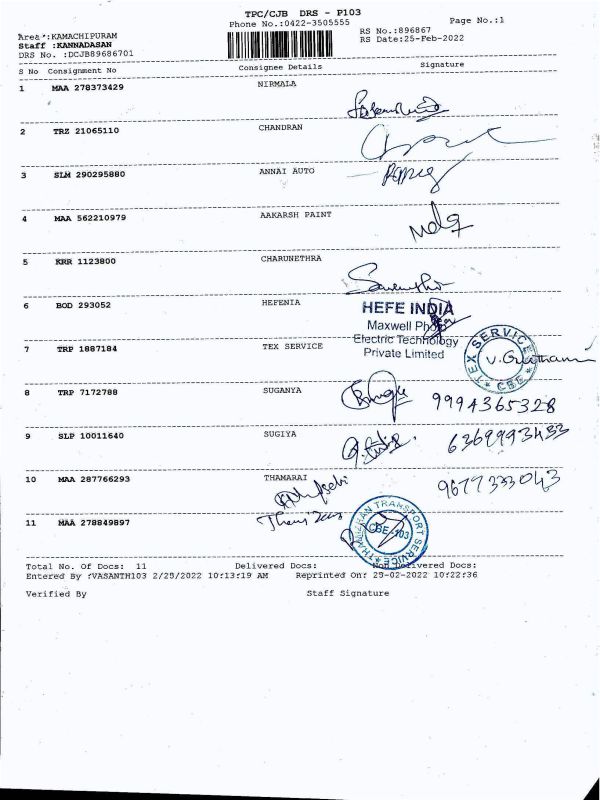 TPC/CJB DRS - P103
Phone No.:0422-3505555
Page No.:1
Area :KAMACHIPURAM
Staff :KANNADASAN
DRS No. :DCJB89686701
RS No.:896867
RS Date:25-Feb-2022
S No Consignment No Consignee Details Signature
1 MAA 278373429 NIRMALA
2 TRZ 21065110 CHANDRAN
3 SLM 290295880 ANNAI AUTO
4 MAA 562210979 AAKARSH PAINT
5 KRR 1123800 CHARUNETHRA
6 BOD 293052 HEFENIA
HEFE INDIA
Maxwell Photo
Electric Technology
Private Limited
7 TRP 1887184 TEX SERVICE
TEX SERVICE
CBE
8 TRP 7172788 SUGANYA
9994365328
9 SLP 10011640 SUGIYA
6369993433
10 MAA 287766293 THAMARAI
9677333043
11 MAA 278849897
TRANSPORT SERVICE
CBE-103
Total No. Of Docs: 11 Delivered Docs: Non Delivered Docs:
Entered By :VASANTH103 2/29/2022 10:13:19 AM Reprinted On: 29-02-2022 10:22:36
Verified By Staff Signature